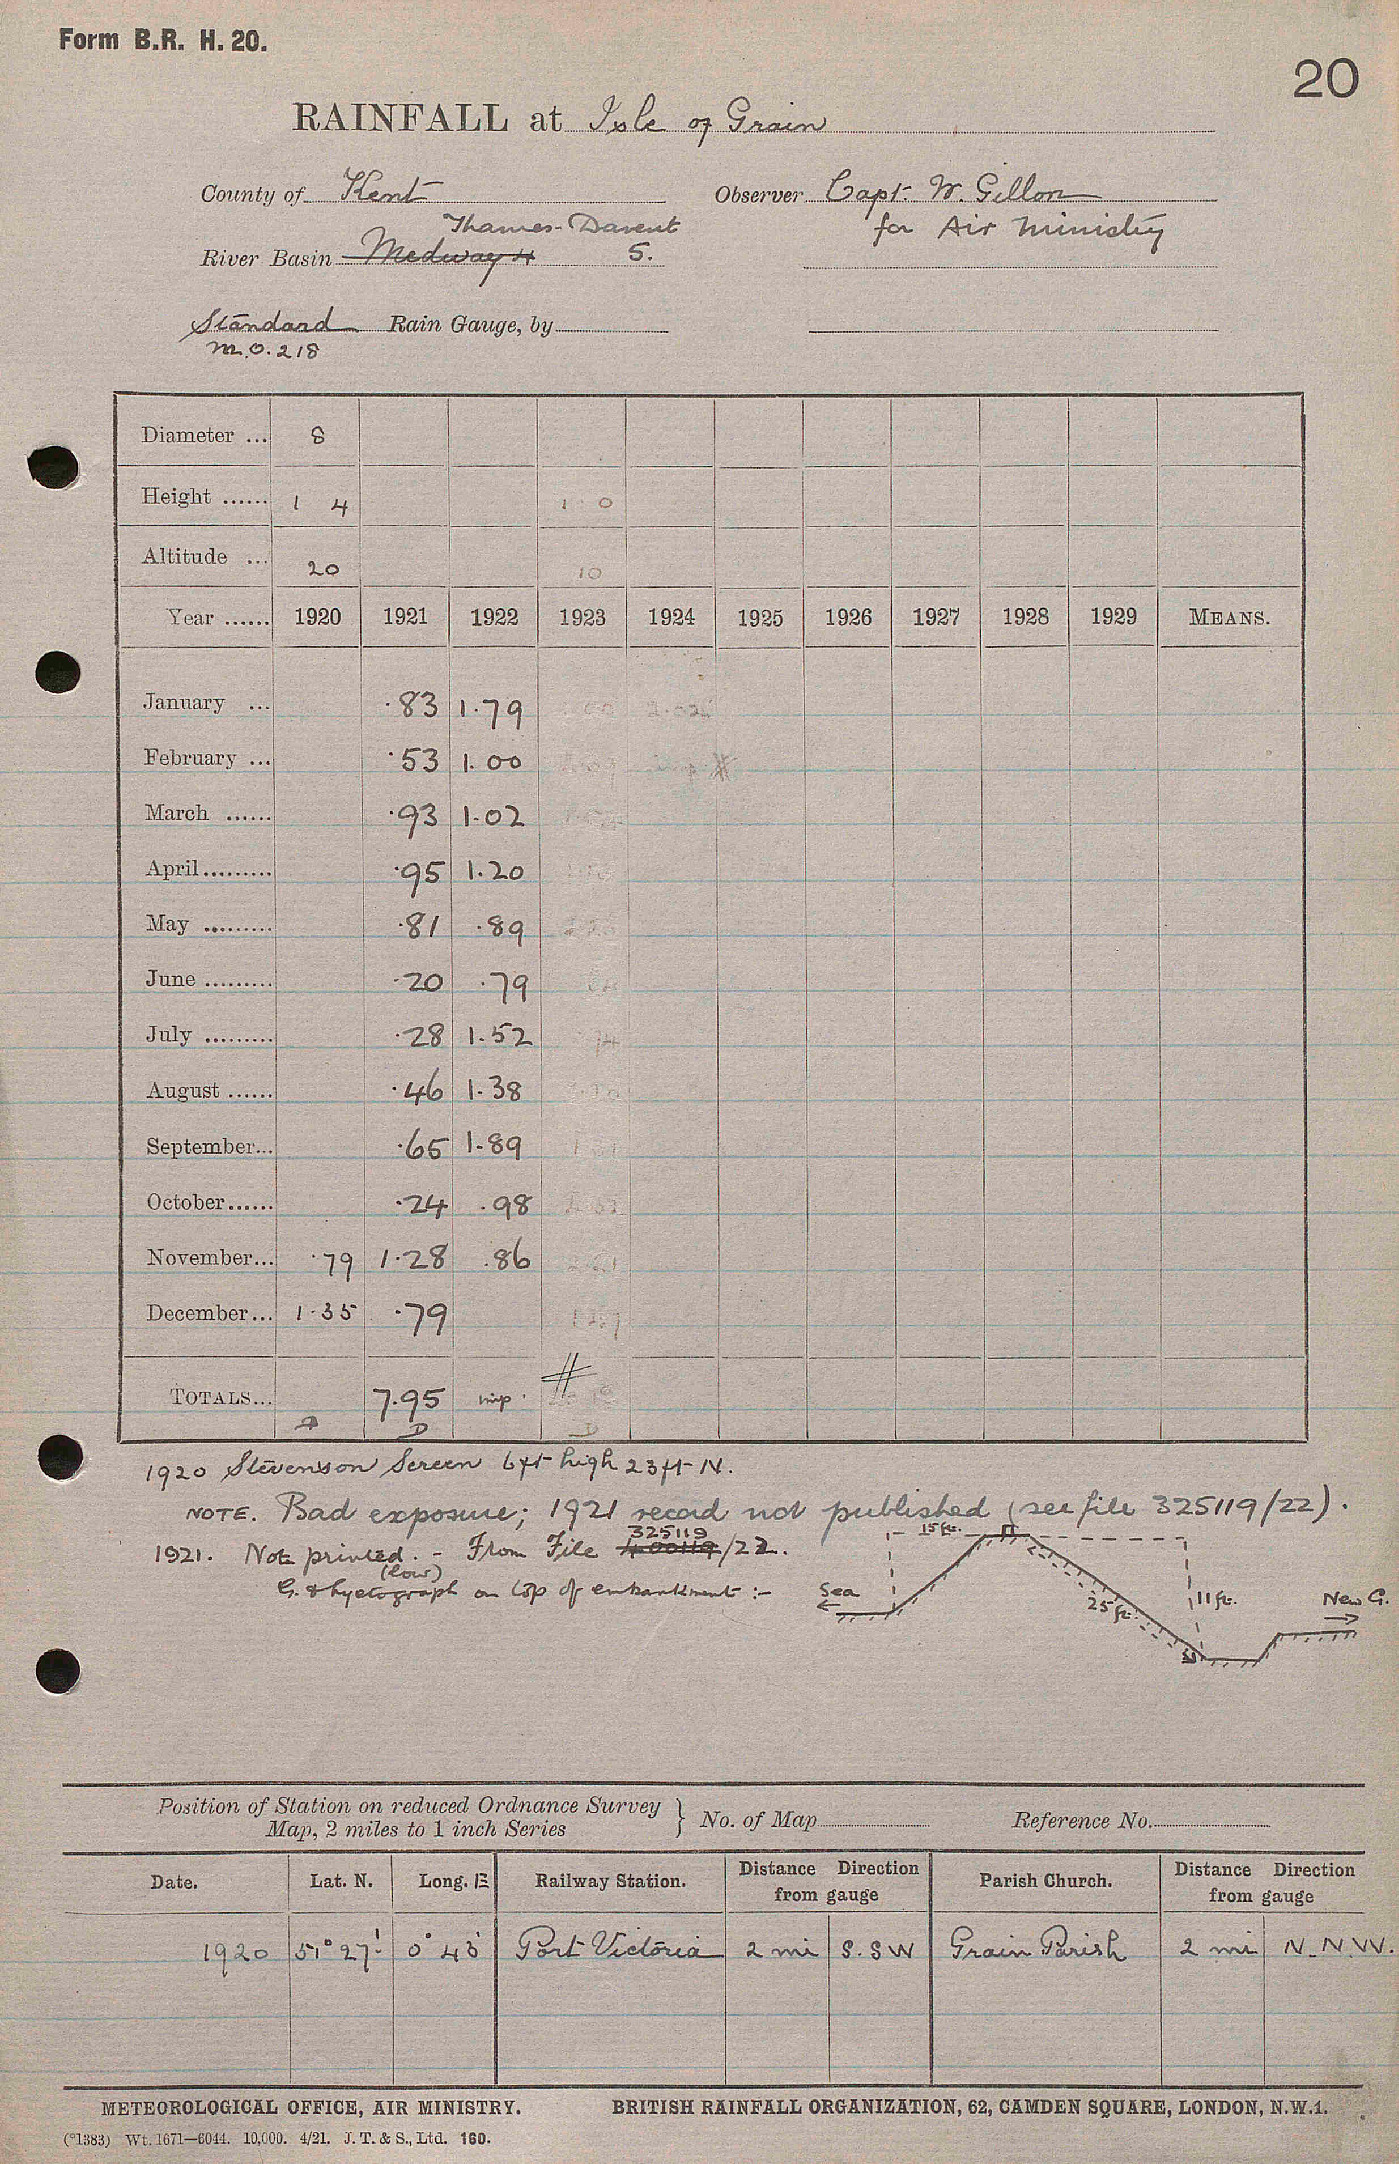 Form B.R. H. 20.
20
RAINFALL at Isle of Grain
County of Kent Observer Capt. W. Gillon
Thames-Darent for Air Ministry
River Basin Medway 4 5.
Standard Rain Gauge, by
M.O. 218
Diameter ... 8
Height ...... 1 4 1 0
Altitude ... 20 10
Year ...... 1920 1921 1922 1923 1924 1925 1926 1927 1928 1929 MEANS.
January ... ·83 1·79
February ... ·53 1.00
March ...... ·93 1·02
April ......... ·95 1.20
May ......... ·81 ·89
June ......... ·20 ·79
July ......... ·28 1.52
August ...... ·46 1·38
September... ·65 1·89
October...... ·24 ·98
November... ·79 1·28 ·86
December... 1·35 ·79
TOTALS... 7.95 imp. #
D D
1920 Stevenson Screen 6ft high 23ft N.
NOTE. Bad exposure; 1921 record not published (see file 325119/22).
325119
1921. Not printed. - From File 400119/22.
(low)
G. & hyetograph on top of embankment :-
15 ft.
Sea
25 ft.
11 ft.
New G.
Position of Station on reduced Ordnance Survey
Map, 2 miles to 1 inch Series } No. of Map Reference No.
Date. Lat. N. Long. E Railway Station. Distance Direction from gauge Parish Church. Distance Direction from gauge
1920 51° 27' 0° 43' Port Victoria 2 mi S.SW Grain Parish 2 mi N.N.W.
METEOROLOGICAL OFFICE, AIR MINISTRY. BRITISH RAINFALL ORGANIZATION, 62, CAMDEN SQUARE, LONDON, N.W.1.
(*1383) Wt. 1671—6044. 10,000. 4/21. J. T. & S., Ltd. 160.